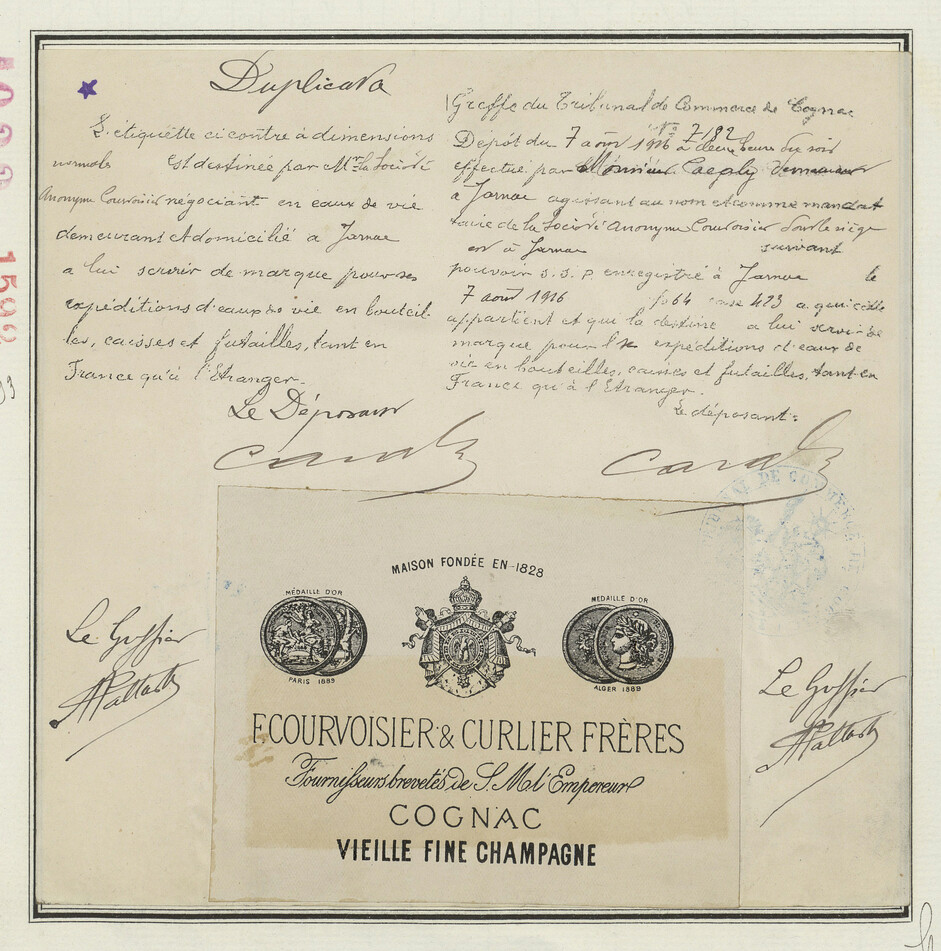 Duplicata
L'étiquette ci contre à dimensions
normales est destinée par Mr. la Société
Anonyme Courvoisier négociant en eaux de vie
demeurant et domicilié a Jarnac
a lui servir de marque pour ses
expéditions d'eaux de vie en bouteil-
les, caisses et futailles, tant en
France qu'à l'Etranger.
Le Déposant
Greffe du Tribunal de Commerce de Cognac
No 7182
Dépôt du 7 août 1916 à deux heure du soir
effectué par Monsieur demeurant
à Jarnac agissant au nom et comme mandat
taire de la Société Anonyme Courvoisier dont le siège
est à Jarnac suivant
pouvoir S.S.P. enregistré à Jarnac le
7 août 1916 fo 64 case 423 a qui cette
appartient et qui la destine a lui servir de
marque pour les expéditions d'eaux de
vie en bouteilles, caisses et futailles, tant en
France qu'à l'Etranger.
Le déposant:
TRIBUNAL DE COMMERCE DE
MAISON FONDÉE EN 1828
MÉDAILLE D'OR
PARIS 1889
MÉDAILLE D'OR
ALGER 1889
F. COURVOISIER & CURLIER FRÈRES
Fournisseurs brevetés de S. M. l'Empereur
COGNAC
VIEILLE FINE CHAMPAGNE
Le Greffier
Le Greffier